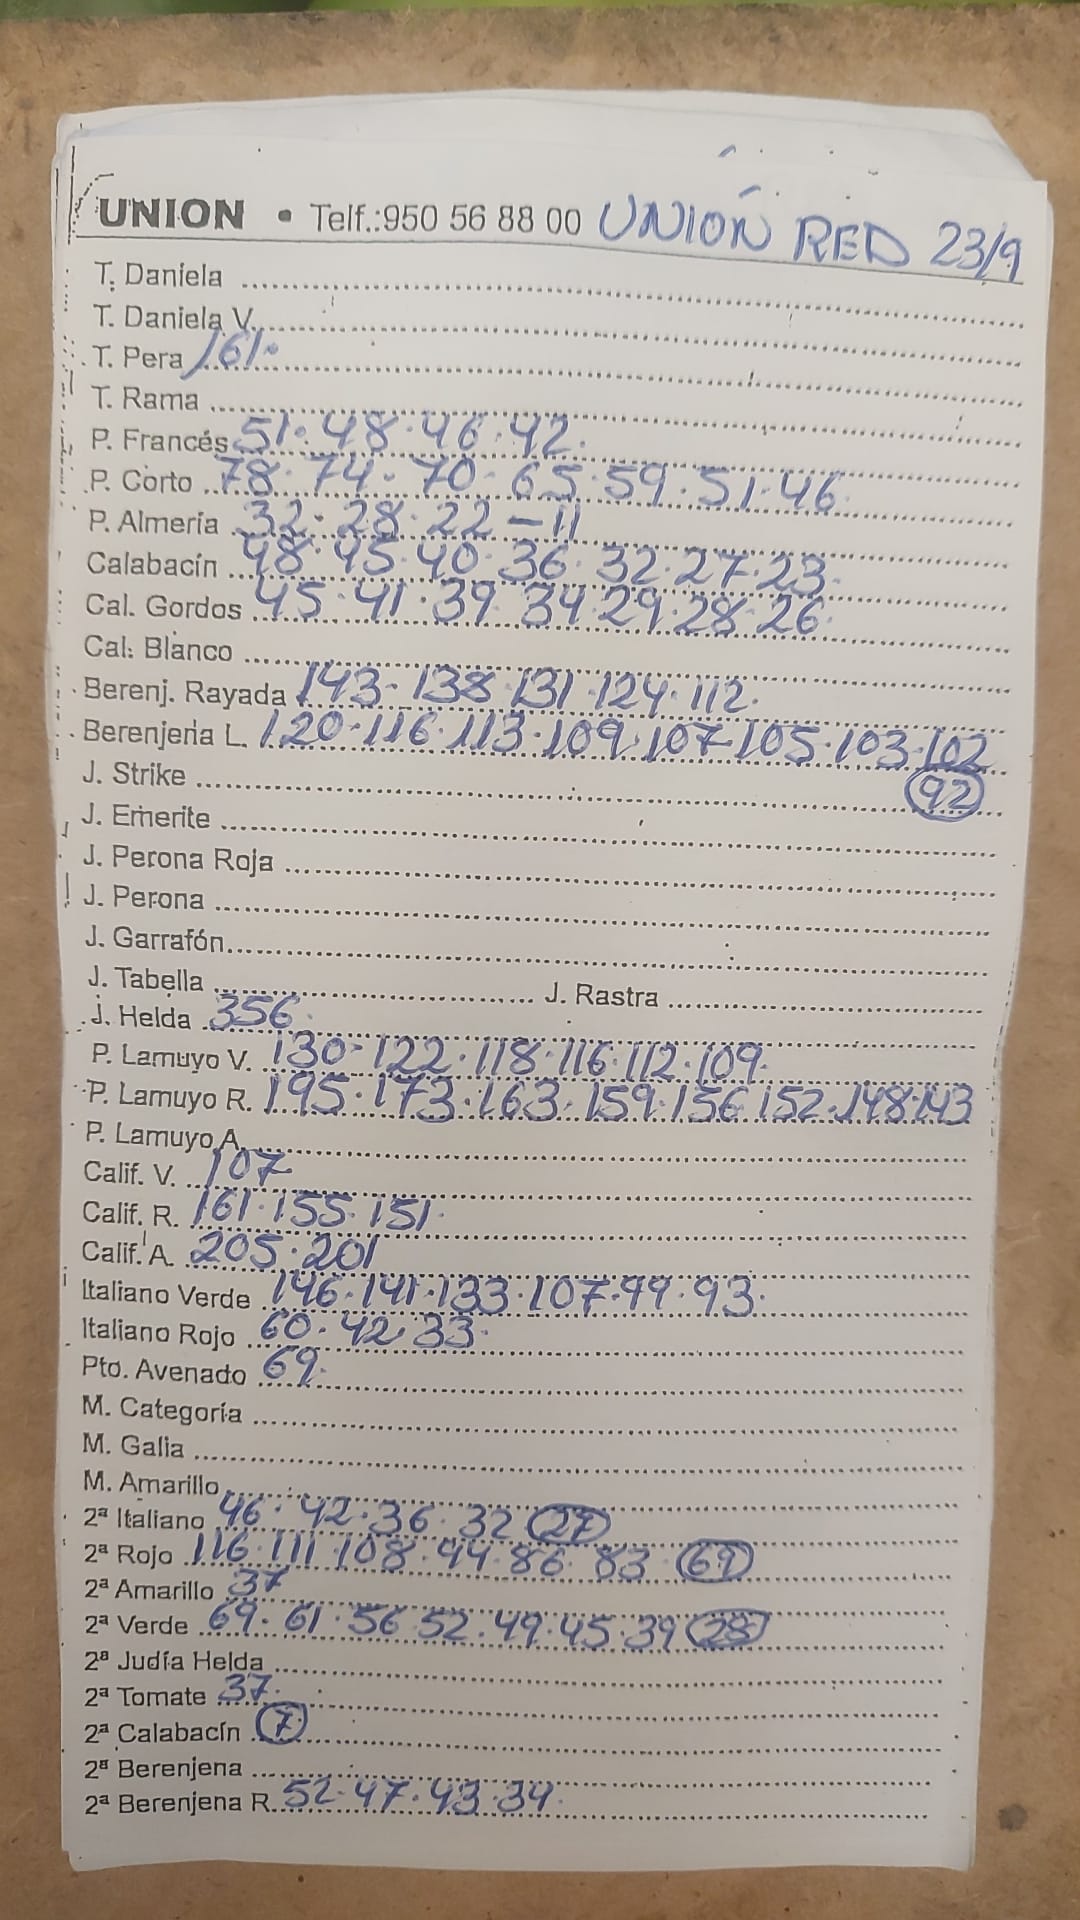 UNION • Telf.:950 56 88 00 UNIÓN RED 23/9
T. Daniela
T. Daniela V.
T. Pera 161.
T. Rama
P. Francés 51. 48. 46. 42.
P. Corto 78. 74. 70. 65. 59. 51. 46.
P. Almería 32. 28. 22 - 11
Calabacín 48. 45. 40. 36. 32. 27. 23.
Cal. Gordos 45. 41. 39 34. 29. 28. 26.
Cal. Blanco
Berenj. Rayada 143. 138. 131. 124. 112.
Berenjena L. 120. 116. 113. 109. 107. 105. 103. 102
J. Strike 92
J. Emerite
J. Perona Roja
J. Perona
J. Garrafón
J. Tabella J. Rastra
J. Helda 356.
P. Lamuyo V. 130. 122. 118. 116. 112. 109.
P. Lamuyo R. 195. 173. 163. 159. 156 152. 148. 143
P. Lamuyo A.
Calif. V. 107
Calif. R. 161. 155. 151.
Calif. A. 205. 201
Italiano Verde 146. 141. 133. 107. 99. 93.
Italiano Rojo 60. 42. 33.
Pto. Avenado 69.
M. Categoría
M. Galia
M. Amarillo
2ª Italiano 46. 42. 36. 32 27
2ª Rojo 116. 111 108. 94. 86. 83. 69
2ª Amarillo 37
2ª Verde 69. 61. 56. 52. 49. 45. 39 28
2ª Judía Helda
2ª Tomate 37.
2ª Calabacín 7
2ª Berenjena
2ª Berenjena R. 52. 47. 43. 34.